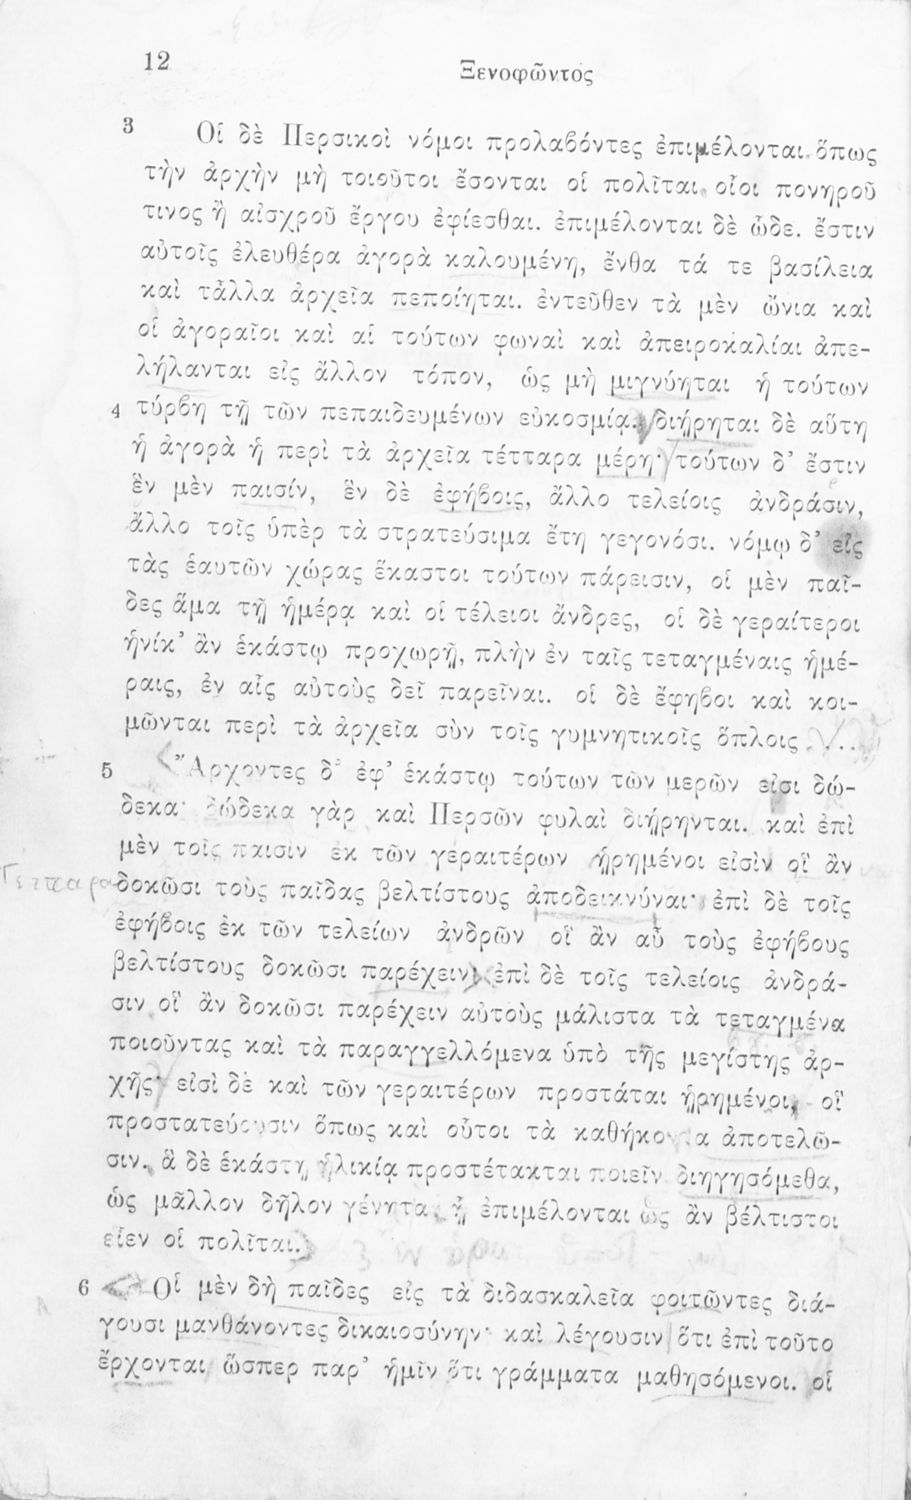 12
Ξενοφῶντος
3 Οἱ δὲ Περσικοὶ νόμοι προλαβόντες ἐπιμέλονται ὅπως
τὴν ἀρχὴν μὴ τοιοῦτοι ἔσονται οἱ πολῖται οἷοι πονηροῦ
τινος ἢ αἰσχροῦ ἔργου ἐφίεσθαι. ἐπιμέλονται δὲ ὧδε. ἔστιν
αὐτοῖς ἐλευθέρα ἀγορὰ καλουμένη, ἔνθα τά τε βασίλεια
καὶ τἆλλα ἀρχεῖα πεποίηται. ἐντεῦθεν τὰ μὲν ὤνια καὶ
οἱ ἀγοραῖοι καὶ αἱ τούτων φωναὶ καὶ ἀπειροκαλίαι ἀπε-
λήλανται εἰς ἄλλον τόπον, ὡς μὴ μιγνύηται ἡ τούτων
4 τύρβη τῇ τῶν πεπαιδευμένων εὐκοσμίᾳ. διῄρηται δὲ αὕτη
ἡ ἀγορὰ ἡ περὶ τὰ ἀρχεῖα τέτταρα μέρη· τούτων δ’ ἔστιν
ἓν μὲν παισίν, ἓν δὲ ἐφήβοις, ἄλλο τελείοις ἀνδράσιν,
ἄλλο τοῖς ὑπὲρ τὰ στρατεύσιμα ἔτη γεγονόσι. νόμῳ δ’ εἰς
τὰς ἑαυτῶν χώρας ἕκαστοι τούτων πάρεισιν, οἱ μὲν παῖ-
δες ἅμα τῇ ἡμέρᾳ καὶ οἱ τέλειοι ἄνδρες, οἱ δὲ γεραίτεροι
ἡνίκ’ ἂν ἑκάστῳ προχωρῇ, πλὴν ἐν ταῖς τεταγμέναις ἡμέ-
ραις, ἐν αἷς αὐτοὺς δεῖ παρεῖναι. οἱ δὲ ἔφηβοι καὶ κοι-
μῶνται περὶ τὰ ἀρχεῖα σὺν τοῖς γυμνητικοῖς ὅπλοις ...
5 Ἄρχοντες δ’ ἐφ’ ἑκάστῳ τούτων τῶν μερῶν εἰσι δώ-
δεκα· δώδεκα γὰρ καὶ Περσῶν φυλαὶ διῄρηνται. καὶ ἐπὶ
μὲν τοῖς παισὶν ἐκ τῶν γεραιτέρων ᾑρημένοι εἰσὶν οἳ ἂν
δοκῶσι τοὺς παῖδας βελτίστους ἀποδεικνύναι· ἐπὶ δὲ τοῖς
ἐφήβοις ἐκ τῶν τελείων ἀνδρῶν οἳ ἂν αὖ τοὺς ἐφήβους
βελτίστους δοκῶσι παρέχειν· ἐπὶ δὲ τοῖς τελείοις ἀνδρά-
σιν οἳ ἂν δοκῶσι παρέχειν αὐτοὺς μάλιστα τὰ τεταγμένα
ποιοῦντας καὶ τὰ παραγγελλόμενα ὑπὸ τῆς μεγίστης ἀρ-
χῆς· εἰσὶ δὲ καὶ τῶν γεραιτέρων προστάται ᾑρημένοι, οἳ
προστατεύουσιν ὅπως καὶ οὗτοι τὰ καθήκοντα ἀποτελῶ-
σιν. ἃ δὲ ἑκάστῃ ἡλικίᾳ προστέτακται ποιεῖν διηγησόμεθα,
ὡς μᾶλλον δῆλον γένηται ᾗ ἐπιμέλονται ὡς ἂν βέλτιστοι
εἶεν οἱ πολῖται.
6 Οἱ μὲν δὴ παῖδες εἰς τὰ διδασκαλεῖα φοιτῶντες διά-
γουσι μανθάνοντες δικαιοσύνην· καὶ λέγουσιν ὅτι ἐπὶ τοῦτο
ἔρχονται ὥσπερ παρ’ ἡμῖν ὅτι γράμματα μαθησόμενοι. οἱ